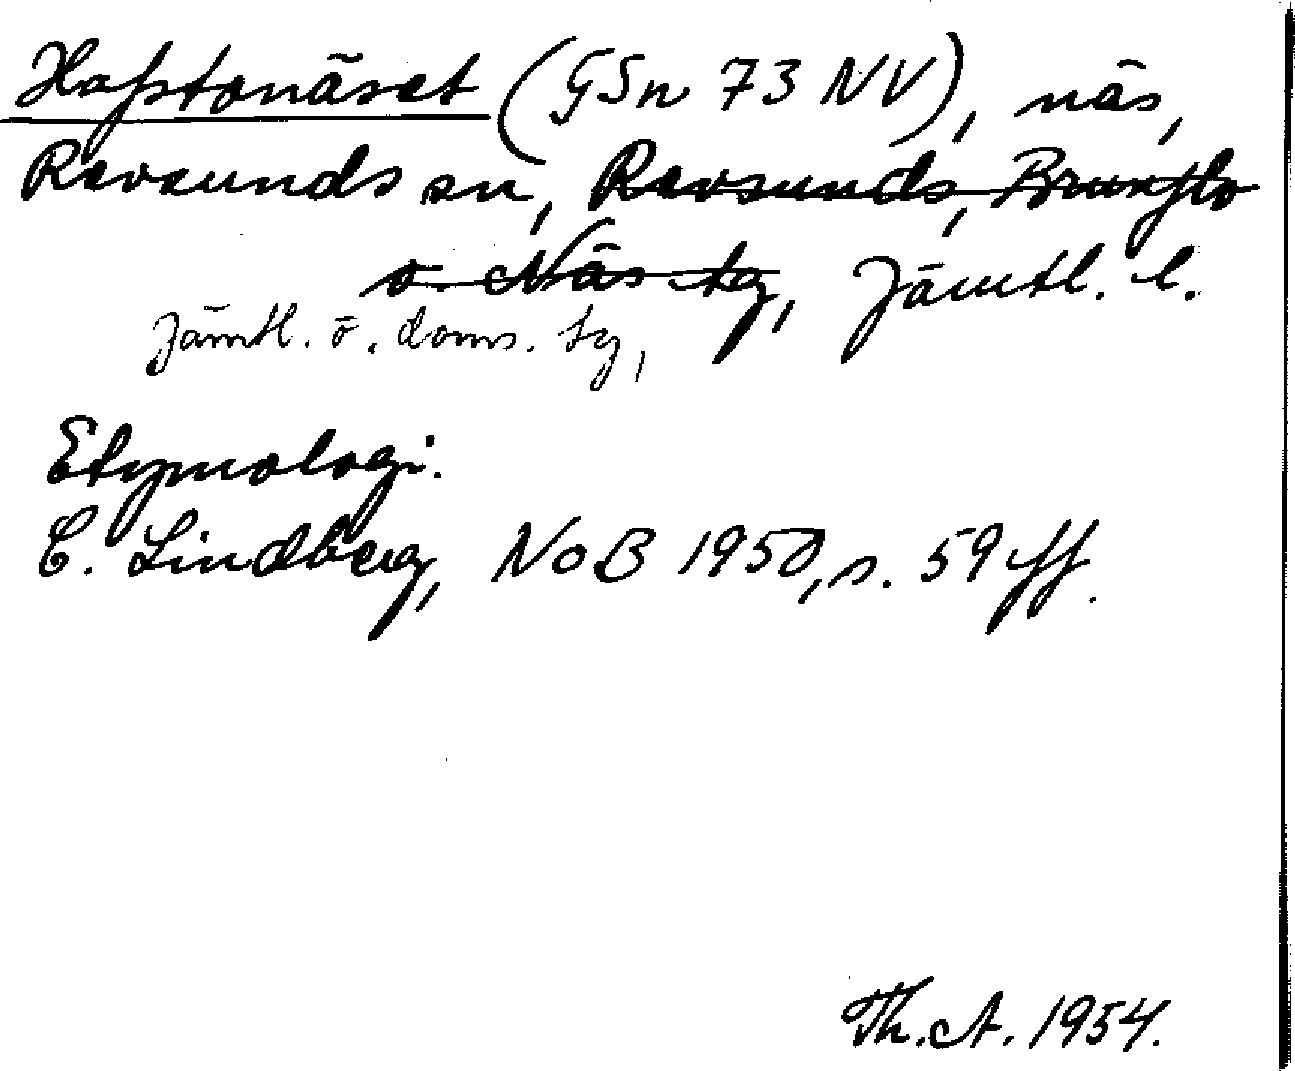 Hastonäset (GSn 73 NV), näs,
Revsunds sn, Revsunds, Brunflo
o. Näs tg, Jämtl. l.
Jämtl. ö. doms. tg,
Etymologi.
C. Lindberg, NoB 1950, s. 59 ff.
Th. A. 1954.